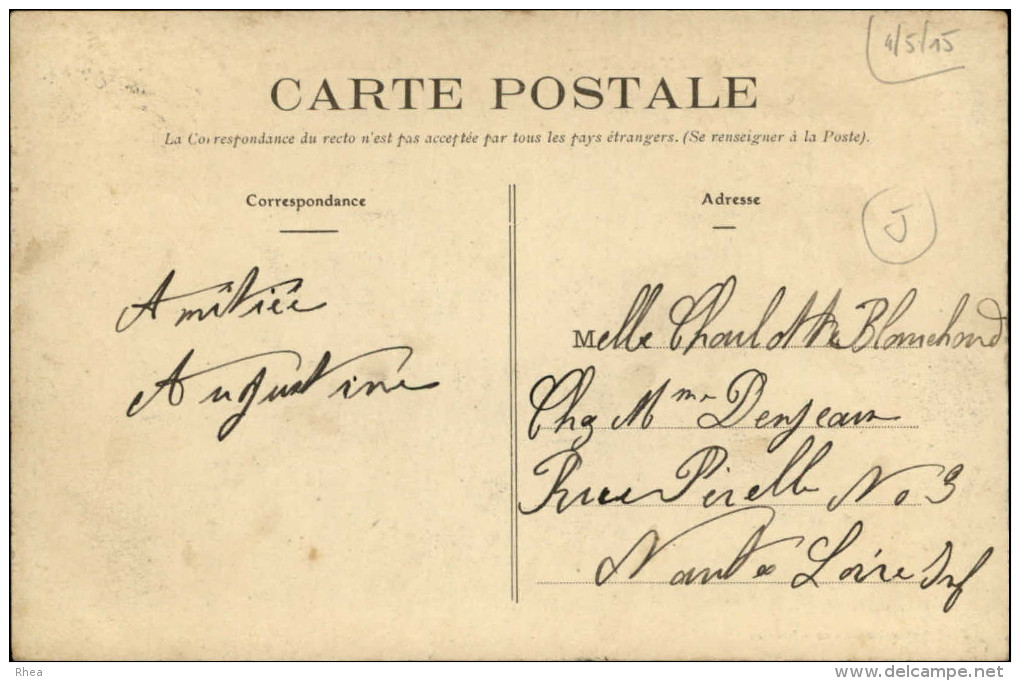 4/5/15
CARTE POSTALE
La Correspondance du recto n'est pas acceptée par tous les pays étrangers. (Se renseigner à la Poste).
Correspondance
Adresse
J
Amitiée
Augustine
Melle Charlotte Blanchard
Chez Mme Denjean
Rue Pérelle No 3
Nantes Loire Inf
Rhea
www.delcampe.net